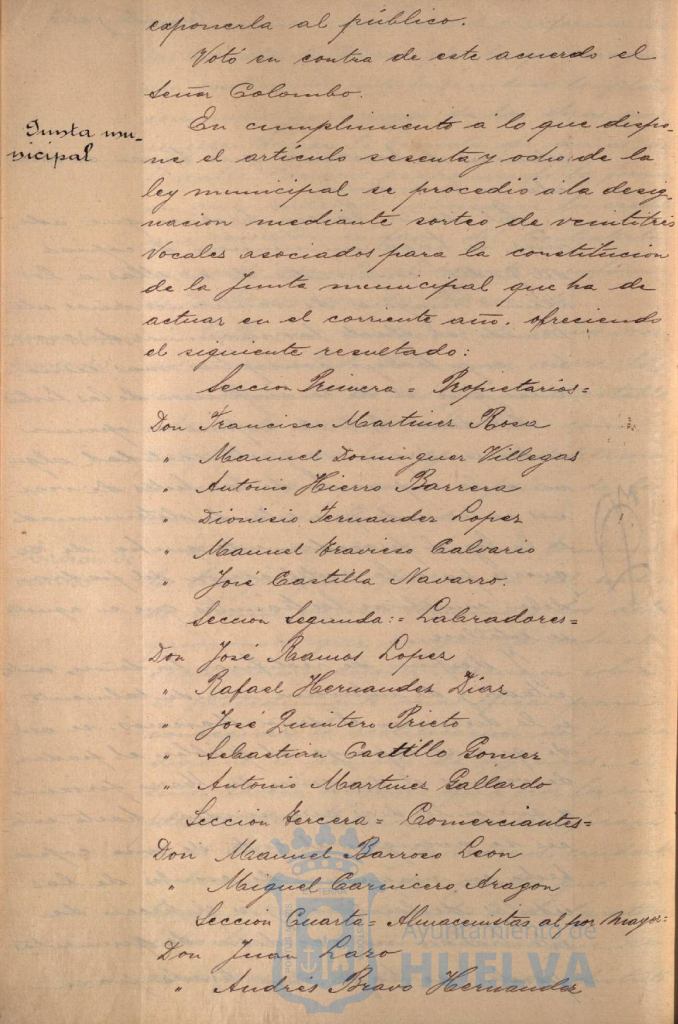 exponerla al público.
Votó en contra de este acuerdo el
Señor Colombo.
Junta mu-
nicipal
En cumplimiento á lo que dispo-
ne el artículo sesenta y ocho de la
ley municipal se procedió á la desig-
nacion mediante sorteo de veintitres
Vocales asociados para la constitucion
de la Junta municipal que ha de
actuar en el corriente año, ofreciendo
el siguiente resultado:
Seccion Primera = Propietarios =
Don Francisco Martinez Rosa
" Manuel Dominguez Villegas
" Antonio Hierro Barrera
" Dionisio Fernandez Lopez
" Manuel Travieso Calvario
" José Castilla Navarro.
Seccion Segunda := Labradores =
Don José Ramos Lopez
" Rafael Hernandez Diaz
" José Quintero Prieto
" Sebastian Castillo Gomez
" Antonio Martinez Gallardo
Seccion tercera = Comerciantes =
Don Manuel Barroso Leon
" Miguel Carnicero Aragon
Seccion Cuarta = Almacenistas al por mayor =
Don Juan Lazo
" Andrés Bravo Hernandez
Ayuntamiento de
HUELVA